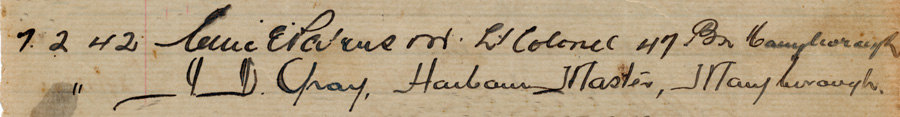 7. 2 42 Lt Colonel 47 Bn Maryborough
" J D. Gray, Harbour Master, Maryborough.